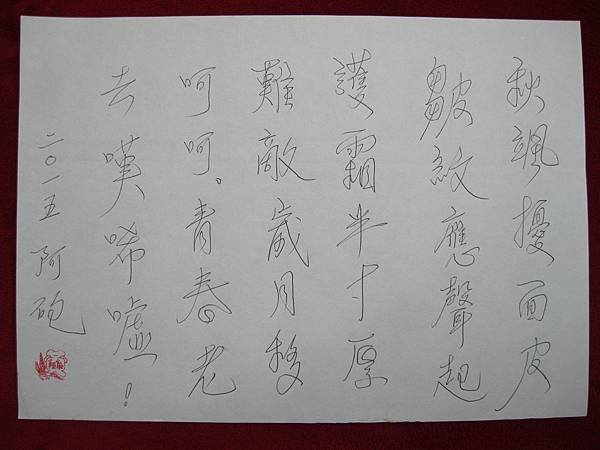 秋颯擾面皮
皺紋應聲起
護霜半寸厚
難敵歲月移
呵呵。青春老
去嘆唏噓！
二〇一五 阿砲